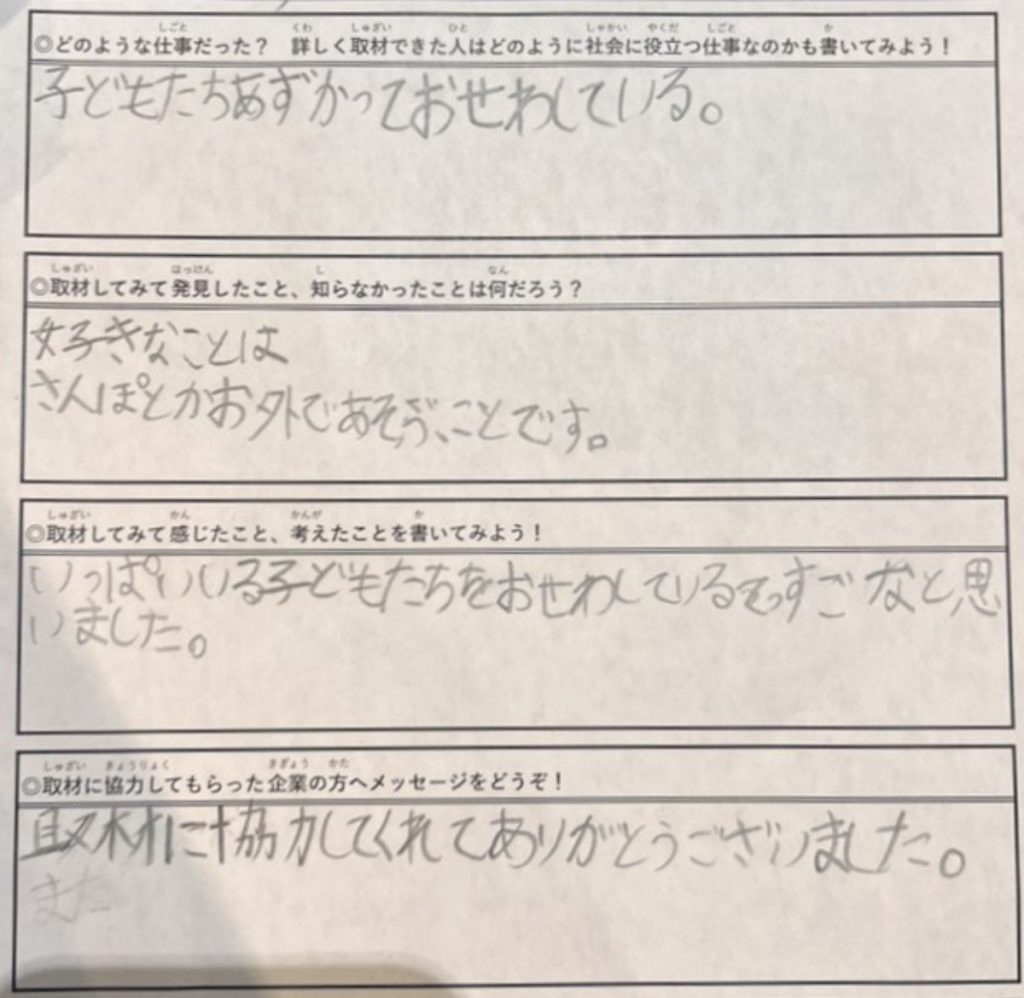 ◎どのような仕事だった？ 詳しく取材できた人はどのように社会に役立つ仕事なのかも書いてみよう！
子どもたちあずかっておせわしている。
◎取材してみて発見したこと、知らなかったことは何だろう？
好きなことは
さんぽとかお外であそぶことです。
◎取材してみて感じたこと、考えたことを書いてみよう！
いっぱいいる子どもたちをおせわしているてっすご なと思
いました。
◎取材に協力してもらった企業の方へメッセージをどうぞ！
取材に協力してくれてありがとうございました。
また